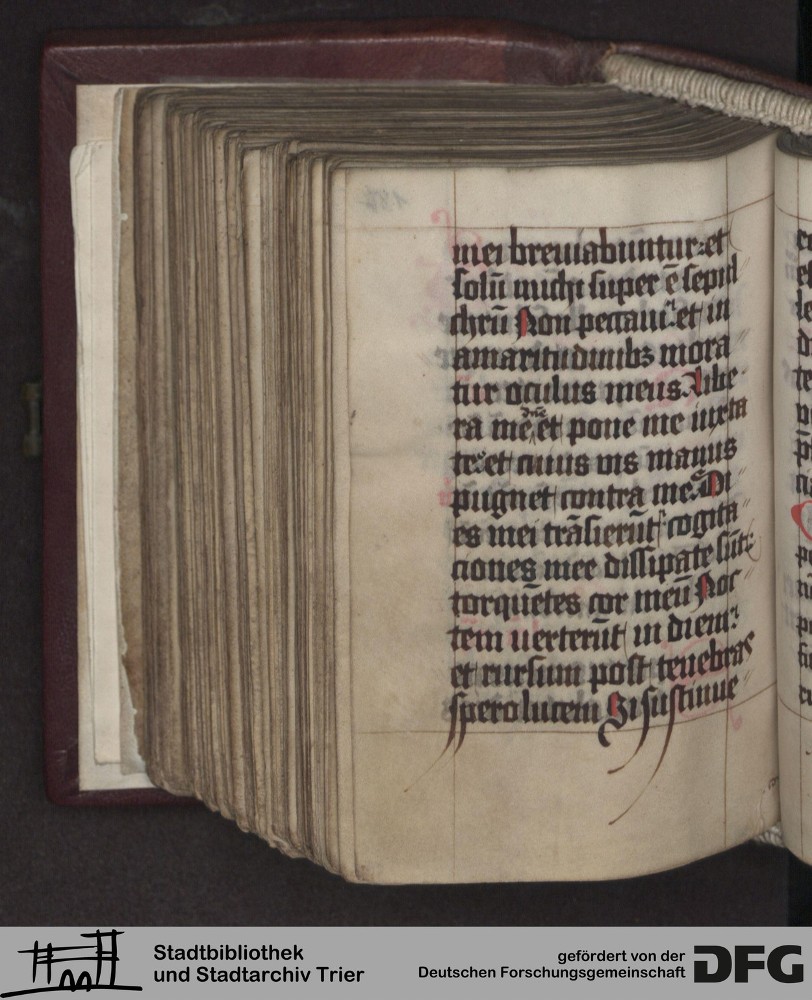 mei breuiabuntur: et
solū michi super ē sepul
chrū Non peccaui: et in
amaritudinibꝫ mora
tur oculus meus. Libe
ra me dn̄e et pone me iuxta
te: et cuius vis manus
pugnet contra me. Di
es mei trāsierūt cogita
ciones mee dissipate sūt:
torquētes cor meū Noc
tem uerterūt in diem:
et rursum post tenebras
spero lucem Si sustinue
Stadtbibliothek
und Stadtarchiv Trier
gefördert von der
Deutschen Forschungsgemeinschaft
DFG